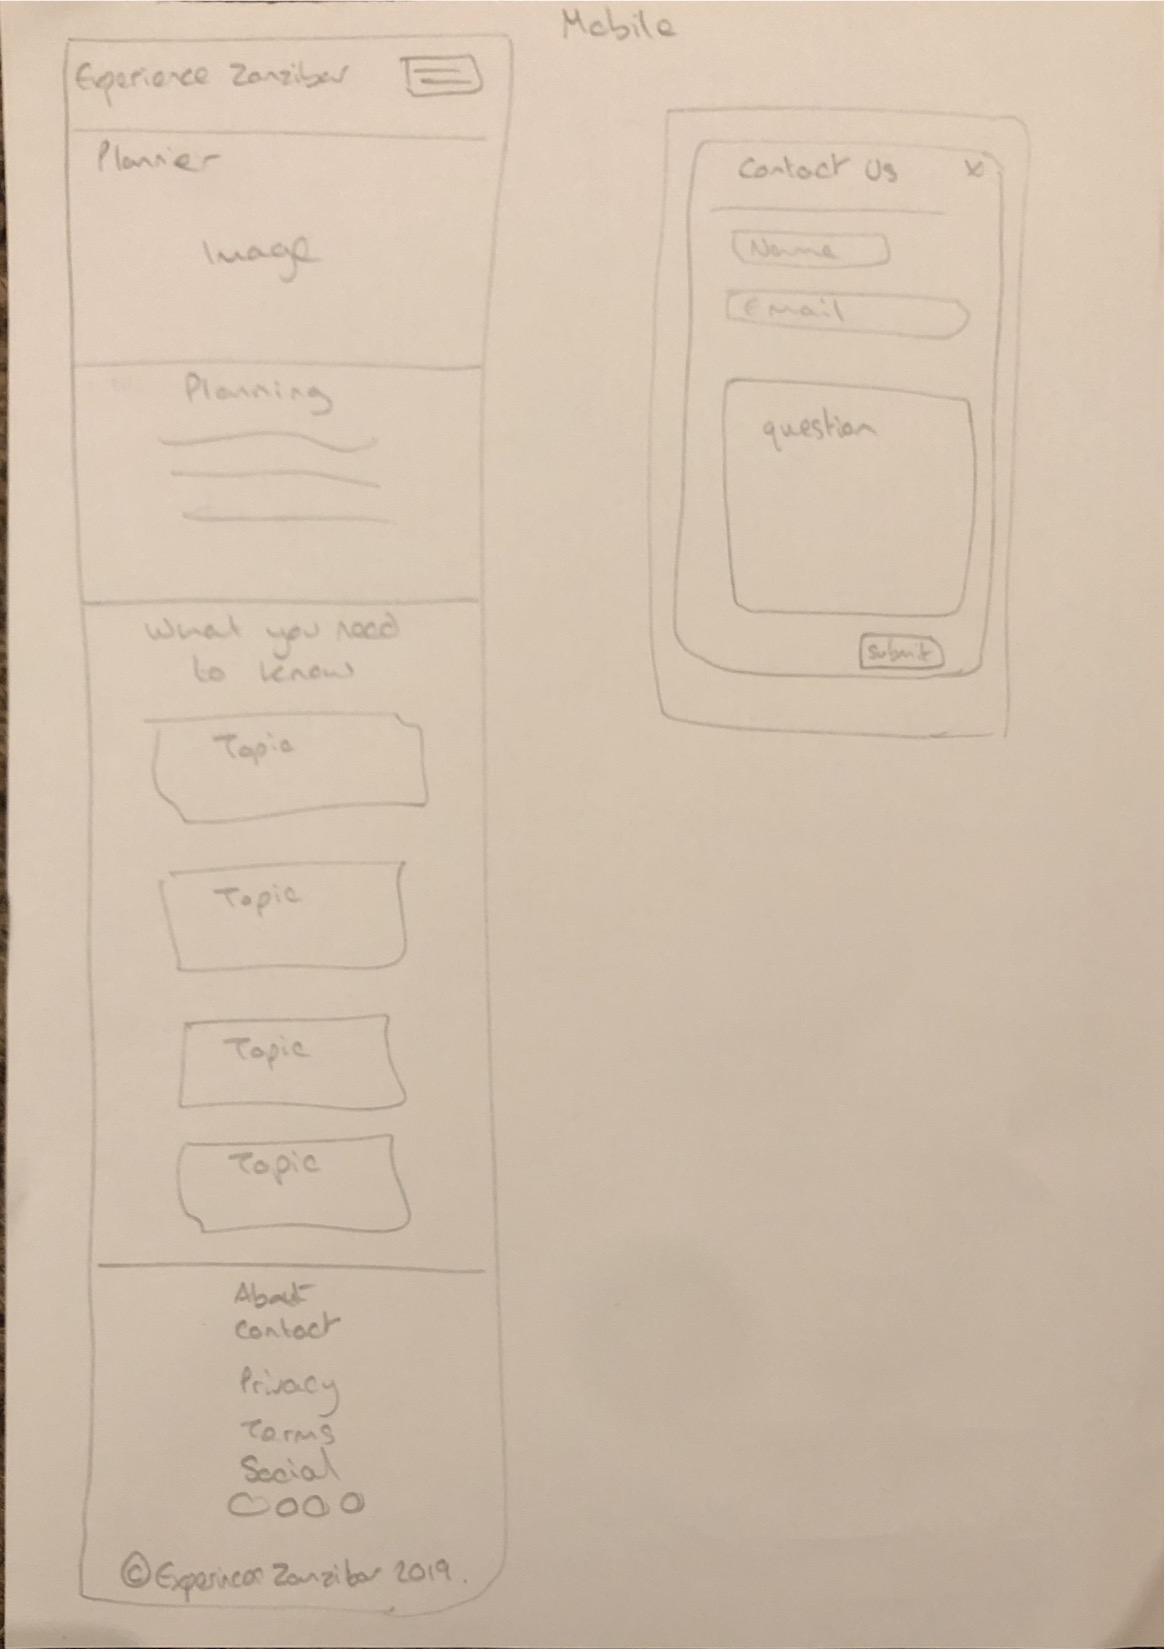 Mobile
Experience Zanzibar
Plannier
Image
Planning
What you need
to know
Topic
Topic
Topic
Topic
About
Contact
Privacy
Terms
Social
© Experince Zanzibar 2019.
Contact Us X
Name
Email
question
Submit